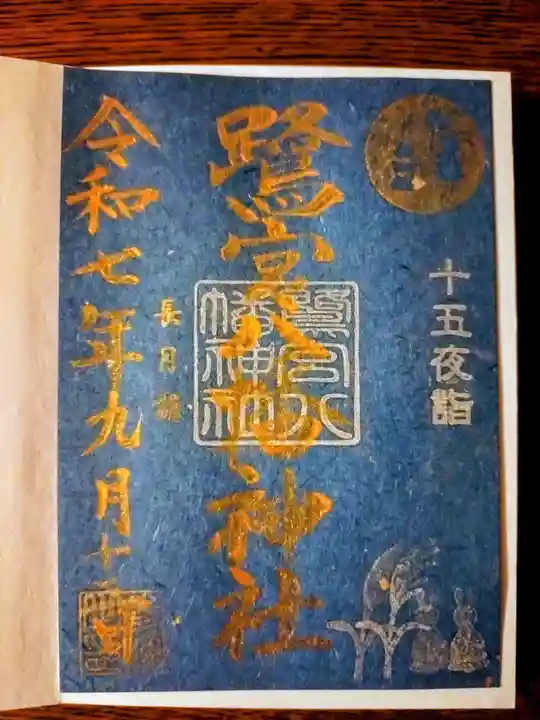 十五夜詣
鷺宮八幡神社
鷺宮八
幡神社
長月詣
令和七年九月十